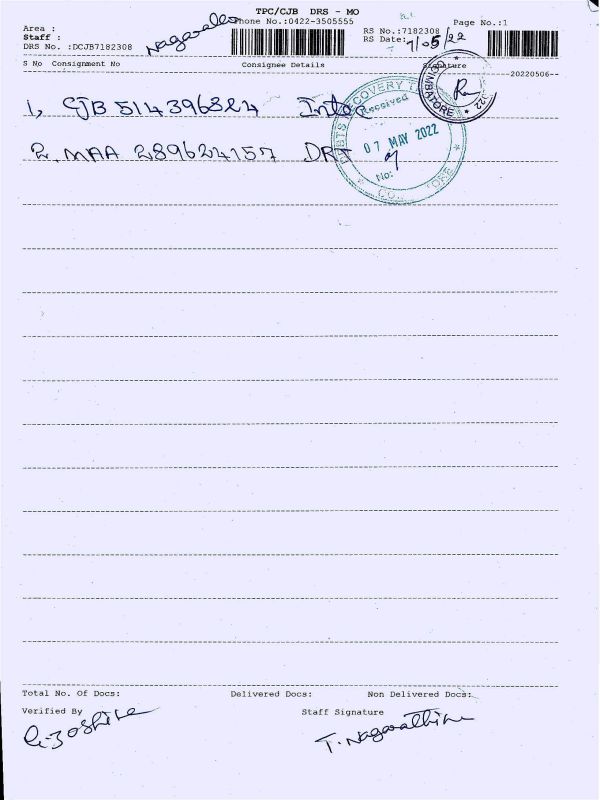 TPC/CJB DRS - MO
Phone No.:0422-3505555
Page No.:1
Area :
Staff :
RS No.:7182308
DRS No. :DCJB7182308
RS Date: 7/05/22
S No Consignment No Consignee Details Signature
20220506--
1, CJB 514396824
2. MAA 289624157 DRT
DEBTS RECOVERY
Received
07 MAY 2022
No:
COIMBATORE
Total No. Of Docs: Delivered Docs: Non Delivered Docs:
Verified By Staff Signature